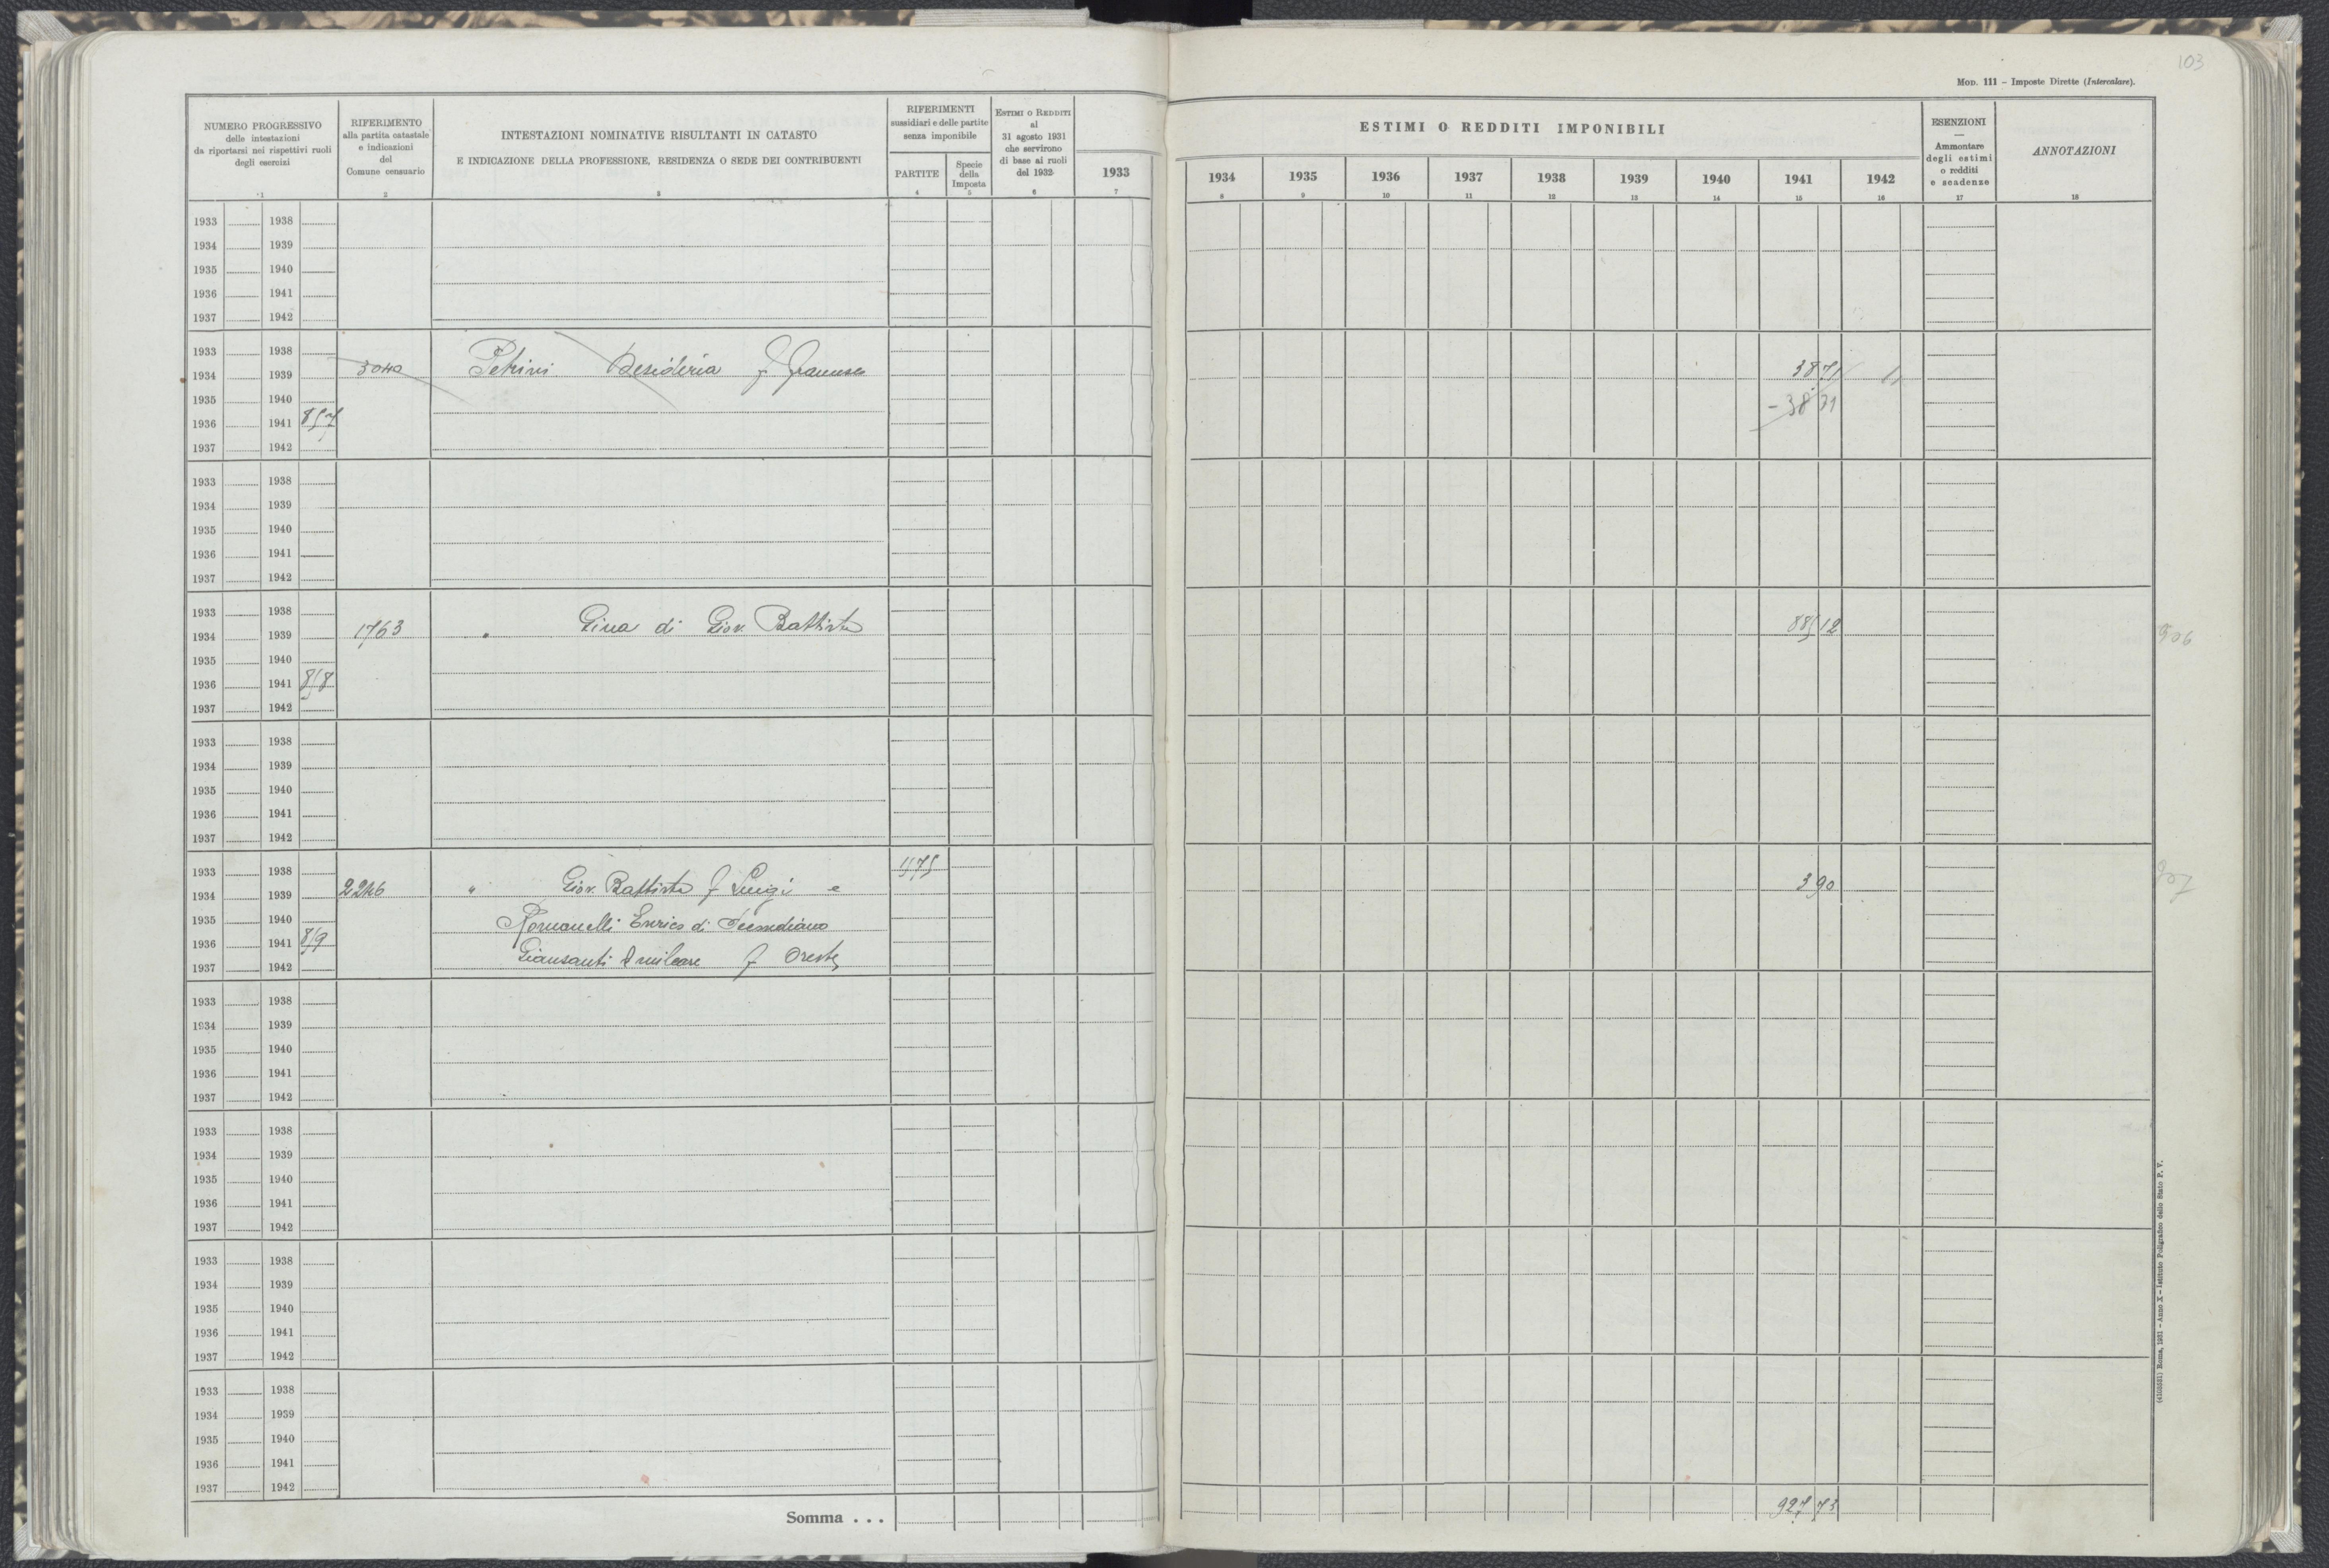 103
MOD. 111 – Imposte Dirette (Intercalare).
NUMERO PROGRESSIVO
delle intestazioni
da riportarsi nei rispettivi ruoli
degli esercizi
RIFERIMENTO
alla partita catastale
e indicazioni
del
Comune censuario
INTESTAZIONI NOMINATIVE RISULTANTI IN CATASTO
E INDICAZIONE DELLA PROFESSIONE, RESIDENZA O SEDE DEI CONTRIBUENTI
RIFERIMENTI
sussidiari e delle partite
senza imponibile
PARTITE
Specie
della
Imposta
ESTIMI O REDDITI
al
31 agosto 1931
che servirono
di base ai ruoli
del 1932
ESTIMI O REDDITI IMPONIBILI
1933 1934 1935 1936 1937 1938 1939 1940 1941 1942
ESENZIONI
—
Ammontare
degli estimi
o redditi
e scadenze
ANNOTAZIONI
1 2 3 4 5 6 7 8 9 10 11 12 13 14 15 16 17 18
1933 1938
1934 1939
1935 1940
1936 1941
1937 1942
1933 1938
1934 1939 3040 Petrini Desideria f Francesco 38 71
1935 1940 - 38 71
1936 1941 857
1937 1942
1933 1938
1934 1939
1935 1940
1936 1941
1937 1942
1933 1938
1934 1939 1763 " Gina di Giov. Battista 885 12 906
1935 1940
1936 1941 858
1937 1942
1933 1938
1934 1939
1935 1940
1936 1941
1937 1942
1933 1938 1575
1934 1939 2246 " Giov. Battista f Luigi e 3 90 907
1935 1940 Romanelli Enrico di
1936 1941 859
1937 1942 Giansanti Amilcare f Oreste
1933 1938
1934 1939
1935 1940
1936 1941
1937 1942
1933 1938
1934 1939
1935 1940
1936 1941
1937 1942
1933 1938
1934 1939
1935 1940
1936 1941
1937 1942
1933 1938
1934 1939
1935 1940
1936 1941
1937 1942
Somma . . . 927 73
Roma, 1931 – Anno X – Istituto Poligrafico dello Stato P. V.